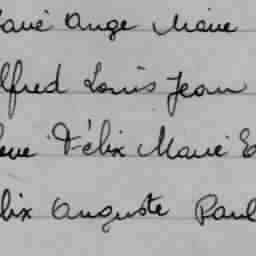 Marie Ange Marie
Alfred Louis Jean
Félix Marie
Félix Auguste Paul